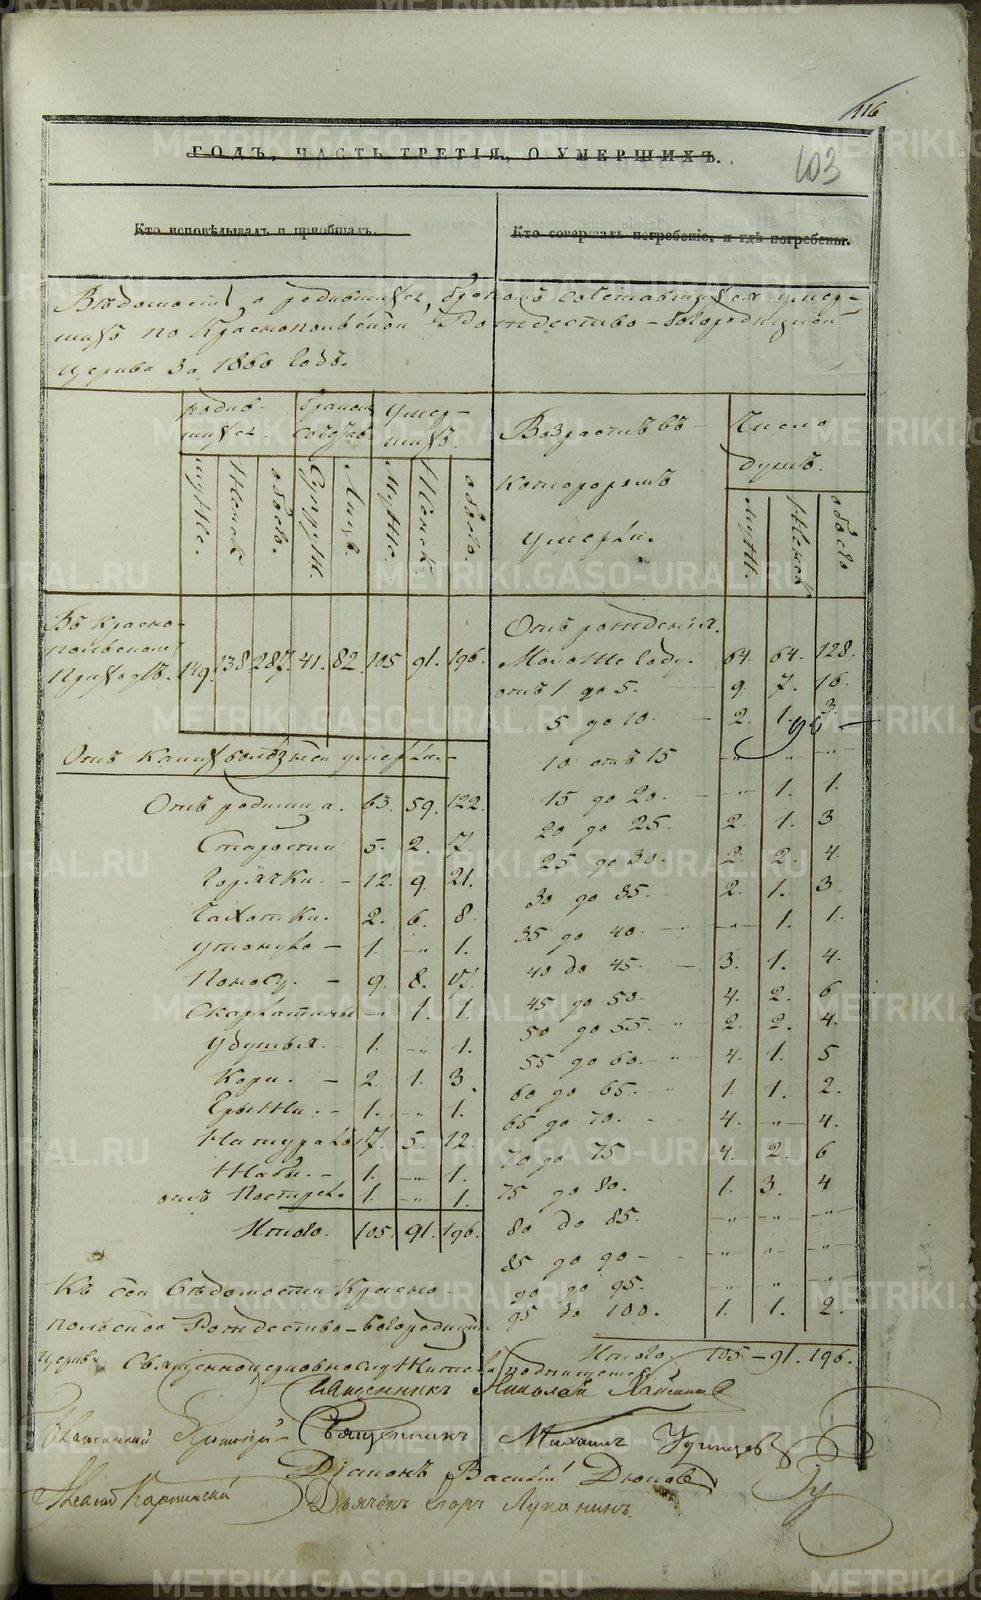 116
103
ГОДЪ, ЧАСТЬ ТРЕТІЯ, О УМЕРШИХЪ.
Кто исповѣдывалъ и пріобщалъ.
Кто совершалъ погребеніе, и гдѣ погребены.
Вѣдомость о родившихся, бракомъ сочетавшихся умер-
шихъ по Краснопольской Рождество-Богородицкой
Церкви За 1860 Годъ.
родив-
шихся.
бракомъ
умер-
шихъ.
муже.
Женск
обоего.
Супруж.
Лицъ.
Муже.
Женск.
обоего.
Въ Красно-
польскомъ
Приходѣ. 149. 138. 287. 41. 82. 105 91. 196.
Отъ какихъ болѣзней умерли.
Отъ родимца. 63. 59. 122.
Старости 5. 2. 7.
Горячки. - 12. 9. 21.
Чахотки. 2. 6. 8.
Утонуло - 1. -„- 1.
Поносу. - 9. 8. 17.
Скарлатины -„ 1. 1.
Удушья. - 1. -„ 1.
Кори. - 2. 1. 3.
Грыжи. - 1. -„ 1.
7. 5. 12.
Жабы. - 1. -„ 1.
отъ 1. -„ 1.
Итого. 105. 91. 196.
Возрастъ въ
которомъ
умерли.
Число
душъ.
муж.
Женск
обоего
Отъ рожденія.
Моложе году. 64. 64. 128.
отъ 1 до 5. 9. 7. 16.
5 до 10. - 2. 1. 3.
96
10 отъ 15 -„- „ -„-
15 до 20. - -„- 1. 1.
20 до 25. 2. 1. 3
25 до 30. 2. 2. 4.
30 до 35. - 2. 1. 3.
35 до 40. - -„- 1. 1.
40 до 45. - 3. 1. 4.
45 до 50. 4. 2. 6
50 до 55. „ 2. 2. 4.
55 до 60. -„ 4. 1. 5
60 до 65. - 1. 1. 2.
65 до 70. - 4. -„- 4.
70 до 75 4. 2. 6
75 до 80. 1. 3. 4
80 до 85. -„- -„- -„-
85 до 90 - -„- -„- -„-
90 до 95. -„ -„- „
95 до 100. 1. 1. 2.
Итого. 105 - 91. 196.
Къ сей Вѣдомости Красно-
польской Рождество-Богородицкой
Церкви Священноцерковнослужители подпишетесь
Священникъ Николай
Священникъ Михаилъ
Діаконъ Василій
Дьячекъ Егоръ Луканинъ.